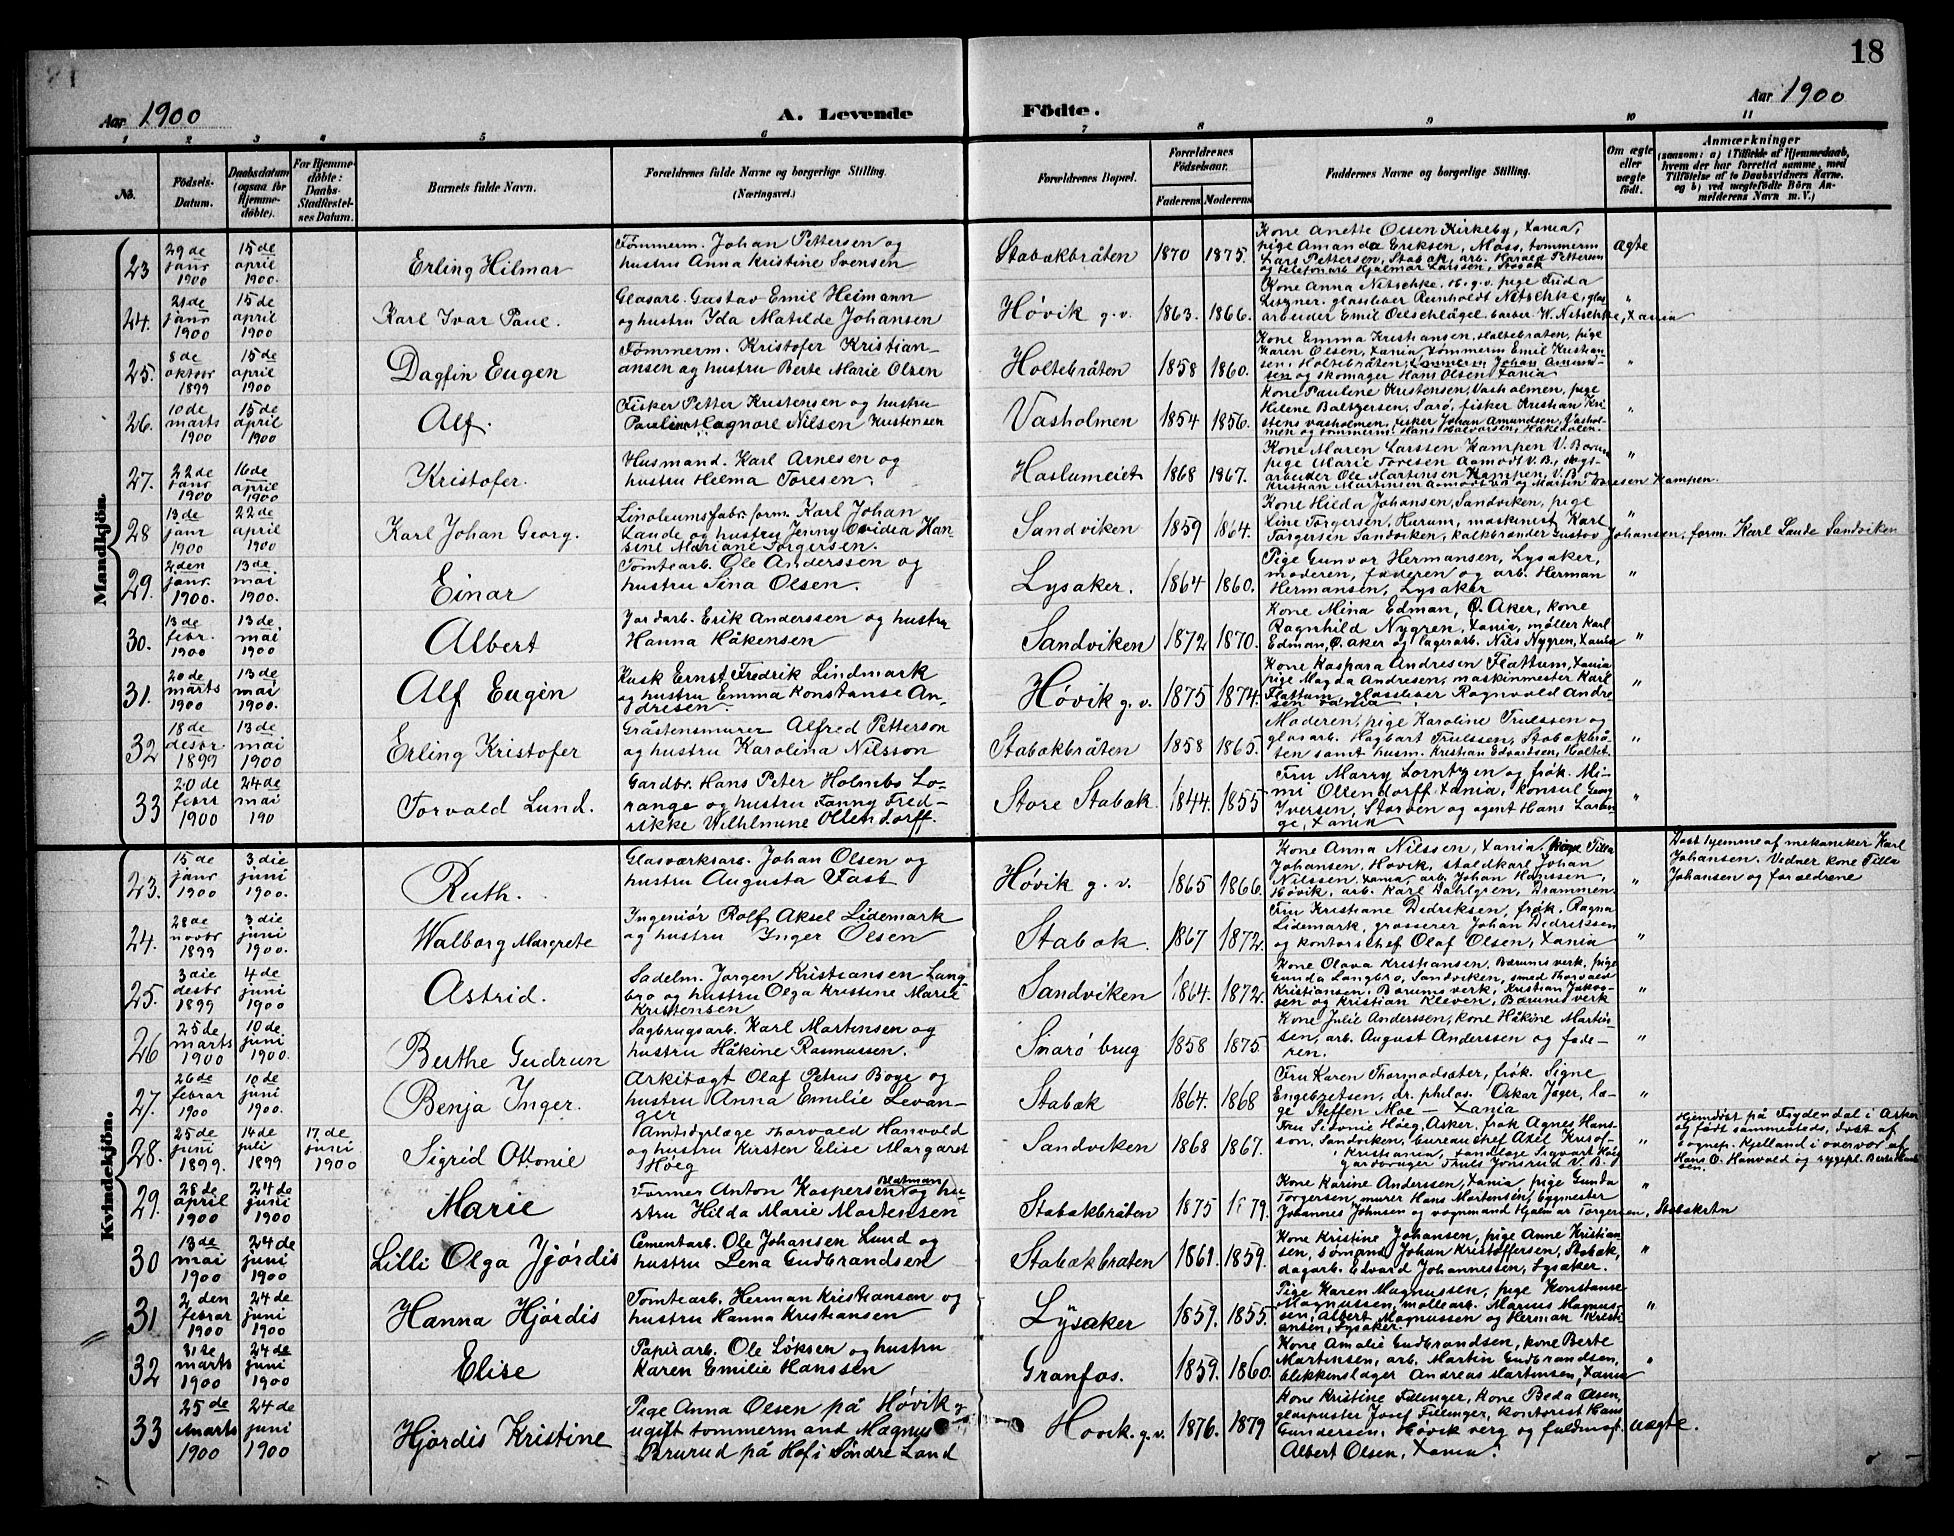 18
Aar 1900
A. Levende Födte.
Aar 1900
1 2 3 4 5 6 7 8 9 10 11
No.
Födsels-Datum.
Daabsdatum (ogsaa for Hjemme-döbte).
For Hjemme-döbte: Daabs-Stadfæstel-ses Datum.
Barnets fulde Navn.
Forældrenes fulde Navne og borgerlige Stilling.
(Næringsvei.)
Forældrenes Bopæl.
Forældrenes Födselsaar.
Faderens Moderens
Faddernes Navne og borgerlige Stilling.
Om ægte eller uægte födt.
Anmærkninger
(saasom: a) i Tilfælde af Hjemmedaab, hvem der har forrettet samme, med Tilföielse af to Daabsvidners Navne, og b) ved uægtefödte Börn An-melderens Navn m. V.)
Mandkjön.
23 29de janr 1900 15de april 1900. Erling Hilmar
Tømmerm. Johan Pettersen og
hustru Anna Kristine Svensen
Stabækbråten 1870 1875.
Kone Anette Olsen Kirkeby, Xania,
pige Amanda Eriksen, Moss, tømmerm
Lars Pettersen, Stabæk, arb. Harald Pettersen
og telefonarb Hjalmar Larssen,
ægte
24. 21de janr 1900 15de april 1900 Karl Ivar Paul
Glasarb. Gustav Emil Heimann
og hustru Ida Matilde Johansen
Høvik g.v. 1863. 1866.
Kone Anna Nitschke, H. g.v. pige Frida
glassliber Reinholdt Nitschke, glas-
arbeider Emil Oelschlägel barber W. Nitschke, Xania
"
25. 8de oktbr 1899 15de april 1900 Dagfin Eugen
Tømmerm. Kristofer Kristian-
ansen og hustru Berte Marie Olsen
Holtebråten 1858 1860.
Kone Emma Kristiansen, Holtebråten, pige
Karen Olsen, Xania, tømmerm Emil Kristian-
sen, Holtebråten, tømmerm Johan Amund-
sen og skomager Hans Olsen Xania
"
26. 10de marts 1900 15de april 1900 Alf.
Fisker Petter Kristensen og hustru
Nilsen Kristensen
Vasholmen 1854 1856.
Kone Pauline Kristensen, Vasholmen, pige
Helene Baltzersen, fisker Kristian Kri-
stens vasholmen, fisker Johan Amundsen, Vashol-
men og tømmerm. Hans Halvorsen, Hakedalen.
"
27. 22de janr 1900 16de april 1900 Kristofer.
Husmand. Karl Arnesen og
hustru Hilma Toresen.
Haslumeiet 1868 1867.
Kone Maren Larssen Kampen V. Bærum
pige Marie Toresen Aamodt V.B.,
arbeider Ole Martinsen Kampen V.B. og
Kristian Martinsen Aamodt og Martin Toresen Kampen.
"
28 13de janr 1900 22de april 1900 Karl Johan Georg.
Linoleumsfabr. form. Karl Johan
Laude og hustru Jenny Ovidia Han-
sine Mariane Torgersen.
Sandviken 1859 1864.
Kone Hilda Johansen, Sandviken, pige
Line Torgersen, Hurum, maskinist Karl
Torgersen Sandviken, kalkbrænder Gustav Johansen, form. Karl Laude Sandviken
"
29. 2den janr. 1900. 13de. mai 1900. Einar
Tomtearb. Ole Anderssen og
hustru Sina Olsen.
Lysaker. 1864 1860.
Pige Gunvor Hermansen, Lysaker,
moderen, faderen og arb. Herman
Hermansen, Lysaker
"
30. 13de febr. 1900 13de. mai 1900 Albert
Jordarb. Erik Anderssen og hustru
Hanna Håkensen
Sandviken 1872 1870.
Kone Mina Edman, Ø. Aker, kone
Ragnhild Nygren, Xania, møller Karl
Edman, Ø. Aker og lagerarb. Nils Nygren, Xania
"
31. 20de marts 1900 13de mai 1900. Alf Eugén
Kusk Ernst Fredrik Lindmark
og hustru Emma Konstanse An-
dresen.
Høvik g.v. 1875 1874.
Kone Kaspara Andresen Flattum, Xania
pige Magda Andresen, maskinmester Karl
Flattum, glassliber Ragnvald Andre-
sen Xania.
"
32 18de desbr 1899 13de mai 1900 Erling Kristofer
Gråstensmurer Alfred Petterson
og hustru Karolina Nilsson
Stabækbråten 1858 1865.
Moderen, pige Karoline Trulssen og
glasarb. Hagbart Trulssen, Stabækbrå-
ten samt husm. Kristian Edvardsen, Holtet.
"
33 20de febr 1900 24de mai 190 Torvald Lund.
Gardbr. Hans Peter Holmbo Lo-
range og hustru Fanny Fred-
rikke Wilhlmine Ollendorff.
Store Stabæk. 1844. 1855
Fru Marry Lorntzen og frøk. Mi-
mi Ollendorff Xania, konsul Georg
Iversen, og agent Hans Loran-
ge, Xania
"
Kvindekjön.
23. 15de janr 1900 3die juni 1900. Ruth.
Glasværksarb. Johan Olsen og
hustru Augusta Fast
Høvik g. v. 1865 1866.
Kone Anna Nilssen, Xania, Tilla
Johansen, Høvik, staldkarl Johan
Nilssen, Xania, arb. Johan Hanssen,
Høvik, arb. Karl Dahlgren, Drammen.
"
Døbt hjemme af mekaniker Karl
Johansen. Vidner kone Tilla
Johansen og forældrene
24. 28de novbr 1899 3die juni 1900. Walborg Margrete
Ingeniør Rolf Aksel Lidemark
og hustru Inger Olsen
Stabæk. 1867 1872.
Fru Kristiane Didriksen, frøk. Ragna
Lidemark, grosserer Johan Didrikssen
og kontorschef Olaf Olsen, Xania
"
25. 3die desbr 1899 4de juni 1900 Astrid.
Sadelm. Jørgen Kristiansen Lang-
bro og hustru Olga Kristine Marie
Kristensen
Sandviken 1864. 1872.
Kone Olava Kristiansen, Bærumsverk, pige
Gunda Langbro, Sandviken, smed Thorvald
Kristiansen, Bærums verk, Kristian Jakob-
sen og Kristian Kleven, Bærumsverk
"
26 25de marts 1900 10de juni 1900. Berthe Gudrun
Sagbrugsarb. Karl Martensen og
hustru Håkine Rasmussen.
Snarø brug 1858 1875.
Kone Julie Anderssen, kone Håkine Martin-
sen, arb. August Anderssen og fade-
ren.
"
27. 26de febrar 1900 10de juni 1900. Benja Inger.
Arkitægt Olaf Petrus Boye og
hustru Anna Emilie Levan-
ger
Stabæk 1864. 1868
Fru Karen Thormodsæter, frøk. Signe
Engebretsen, dr. philos. Oskar Jæger, læ-
ge Steffen Moe — Xania
"
28. 25de juni 1899. 14de juli 1899 17de juni 1900 Sigrid Ottonie
Amtsdyrlæge Thorvald Hanvold
og hustru Kirsten Elise Margaret
Høeg
Sandviken 1868 1867.
Fru Sidonie Høeg, Asker, frøk Agnes Hans-
son, Sandviken, bureauchef Axel
Kristiania, tandlæge Sigvart Høeg
gardbruger Truls Jonsrud V. B.
"
Hjemdøbt på Frydendal i Asker
og født sammesteds, døbt af
sognep. Kjelland i overvær af
Hans O. Hanvold og sygepl. Berte Hansen.
29. 28de april 1900 24de juni 1900 Marie
Former Anton Kaspersen Blatman og hu-
stru Hilda Marie Martensen
Stabækbråten 1875 1879.
Kone Karine Anderssen, Xania, pige Gunda
Torgersen, murer Hans Martensen, bygmester
Johannes Johnsen og vognmand Hjalmar Torgersen, Stabækrtn
"
30 13de mai 1900 24de juni 1900 Lilli Olga Hjørdis
Cementarb. Ole Johansen Lund og
hustru Lena Gudbrandsen
Stabækbraten 1861. 1859.
Kone Kristine Johansen, pige Anne Kristian-
sen, sømand Johan Kristoffersen, Stabæk,
dagarb. Edvard Johannessen, Lysaker.
"
31 2den febrar 1900 24de juni 1900 Hanna Hjørdis
Tomtearb. Herman Kristiansen og
hustru Hanna Kristiansen
Lysaker 1859. 1855.
Pige Karen Magnussen, pige Konstanse
Magnussen, møllearb. Marius Magnus-
sen, Albert Magnussen og Herman Kristi-
ansen, Lysaker
"
32 31te marts 1900 24de juni 1900 Elise
Papirarb. Ole Løksen og hustru
Karen Emilie Hanssen
Granfos. 1859. 1860
Kone Amalie Gudbrandsen, kone Berte
Martinsen, arb. Martin Gudbrandsen,
blikkenslager Andreas Martinsen, Xania
"
33 25de marts 1900 24de juni 1900 Hjørdis Kristine
Pige Anna Olsen på Høvik og
ugift tømmermand Magnus
Brurud på Hof i Søndre Land
Høvik. g.v. 1876. 1879
Kone Kristine Fillinger, kone Beda Olsen,
glaspuster Josef Fillinger, kontorist Hans
Gundersen, Høvik verg og fuldmægt.
Albert Olsen, Xania.
uægte.